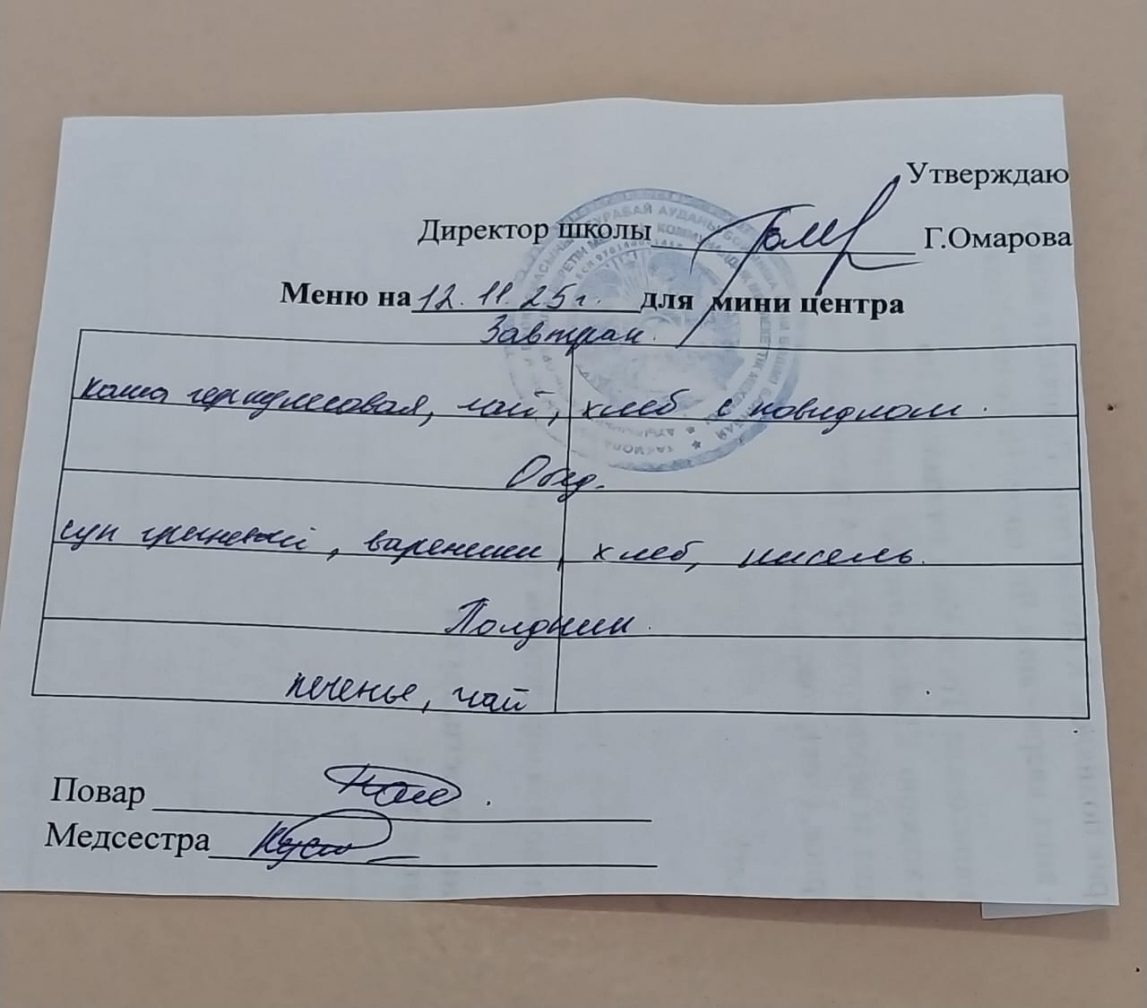 Утверждаю
Директор школы Г.Омарова
Меню на 12.11.25г. для мини центра
Завтрак.
каша геркулесовая, чай, хлеб с повидлом.
Обед.
суп гречневый, вареники, хлеб, кисель.
Полдник.
печенье, чай
Повар
Медсестра